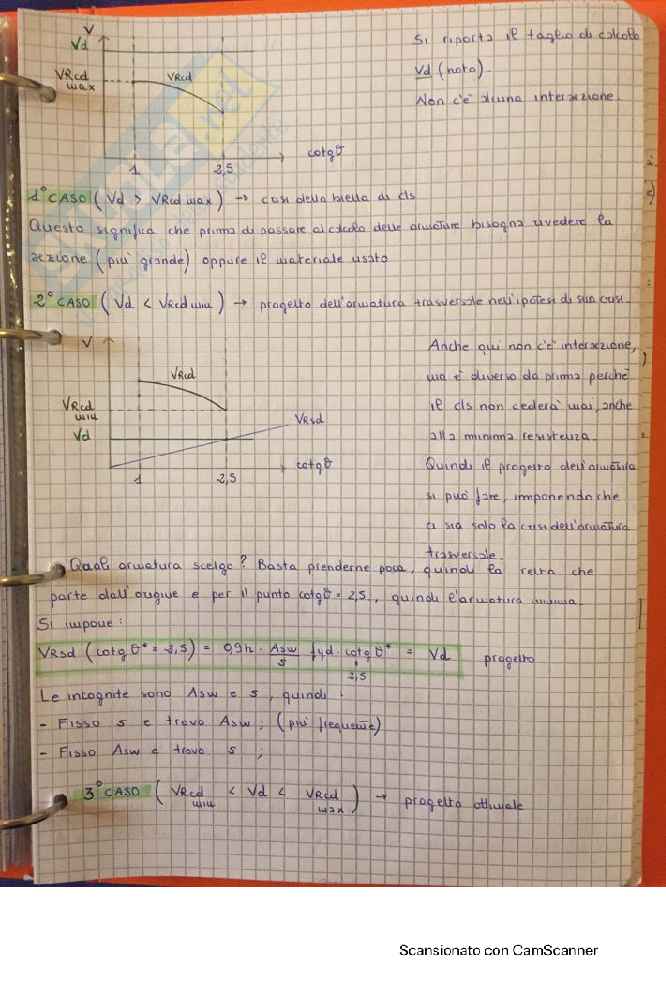 V
Vd
VRcd
max
VRcd
1
2,5
cotgθ
Si riporta il taglio di calcolo
Vd (noto).
Non c'è alcuna intersezione.
1° CASO ( Vd > VRcd max ) → crisi della biella di cls
Questo significa che prima di passare al calcolo delle armature bisogna rivedere la
sezione (più grande) oppure il materiale usato
2° CASO ( Vd < VRcd min ) → progetto dell'armatura trasversale nell'ipotesi di sua crisi.
V
VRcd
VRcd
min
Vd
VRsd
1
2,5
cotgθ
Anche qui non c'è intersezione,
ma è diverso da prima perché
il cls non cederà mai, anche
alla minima resistenza.
Quindi il progetto dell'armatura
si può fare, imponendo che
ci sia solo la crisi dell'armatura
trasversale.
Quale armatura scelgo? Basta prenderne poca, quindi la retta che
parte dall'origine e per il punto cotgθ = 2,5, quindi l'armatura minima.
Si impone :
VRsd ( cotgθ* = 2,5 ) = 0,9h · Asw/s fyd · cotgθ* = Vd progetto
2,5
Le incognite sono Asw e s, quindi :
- Fisso s e trovo Asw ; (più frequente)
- Fisso Asw e trovo s ;
3° CASO ( VRcd min < Vd < VRcd max ) → progetto ottimale
Scansionato con CamScanner